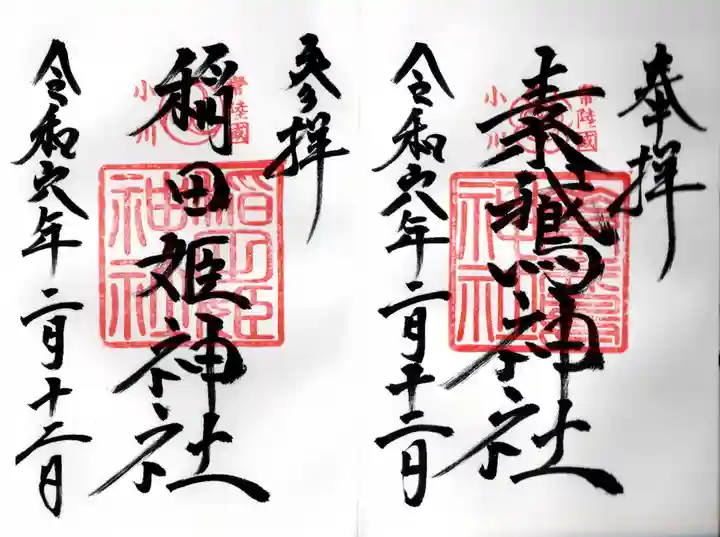 奉拝
常陸國
小川
素鵞神社
令和六年二月十二日
参拝
常陸國
小川
稲田姫神社
稲田姫
神社
令和六年二月十二日